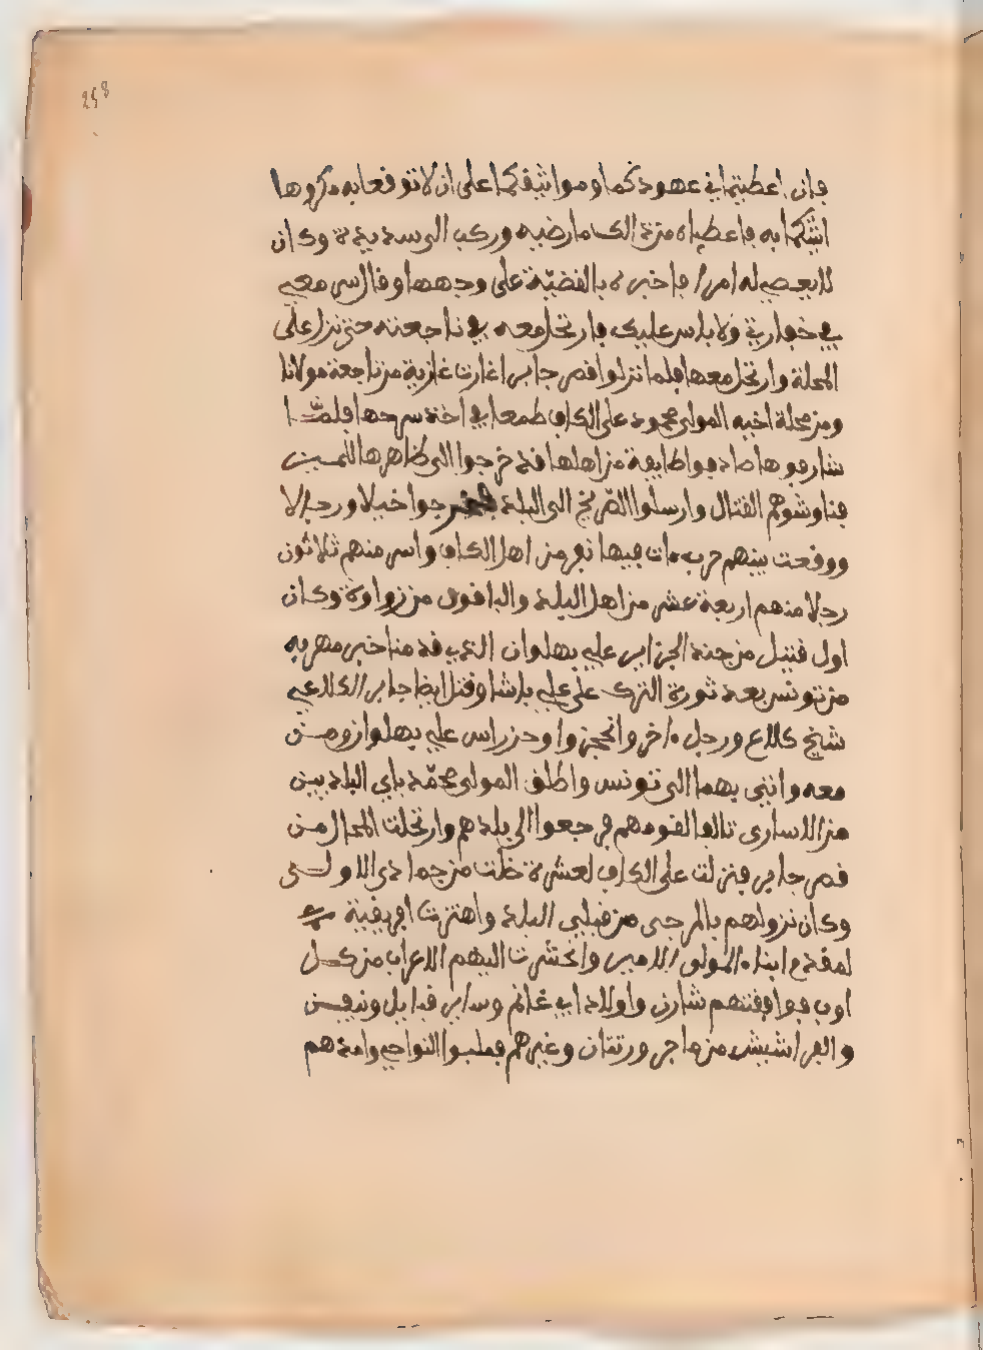 258
فان اعطيتماني عهودكما ومواثيقكما على ان لا توقعا به مكروها
اتيتكما به فاعطياه من ذلك ما رضيه وركب الى سيده وكان
لا يعصي له امرا فاخبره بالقضيّة على وجهها وقال سر معي
في خفارتي ولا باس عليك فارتحل معه في ناجعته حتى نزل على
المحلة وارتحل معها فلما نزلوا قصر جابر اغارت غازية من ناجعة مولانا
ومن محلة اخيه المولى محمود على الكاف طمعا في اخذ سرحها فلمّا
شارفوها صادفوا طايفة من اهلها قد خرجوا الى ظاهرها
فناوشوهم القتال وارسلوا الصّريخ الى البلد فخرجوا خيلا ورجلا
ووقعت بينهم حرب مات فيها نفر من اهل الكاف واسر منهم ثلاثون
رجلا منهم اربعة عشر من اهل البلد والباقون من زواوة وكان
اول قتيل من جند الجزاير علي بهلوان الذي قدمنا خبر مهربه
من تونس بعد ثورة الترك على علي باشا وقتل ايضا جابر الكلاعي
شيخ كلاع ورجل ءاخر وانحجزوا وحز راس علي بهلوان ومن
معه واتى بهما الى تونس واطلق المولى محمّد باي البلديين
من الاسارى تالفا لقومهم فرجعوا الى بلدهم وارتحلت المحال من
قصر جابر فنزلت على الكاف لعشرة خلت من جمادى الاولى
وكان نزولهم بالمرجى من قبلي البلد واهتزت افريقية
لمقدم ابناء المولى الامير وانحشرت اليهم الاعراب من كل
اوب فوافتهم شارن واولاد ابي غانم وساير قبايل ونيفن
والفراشيش من ماجر ورتتان وغيرهم فملئوا النواحي وامدهم